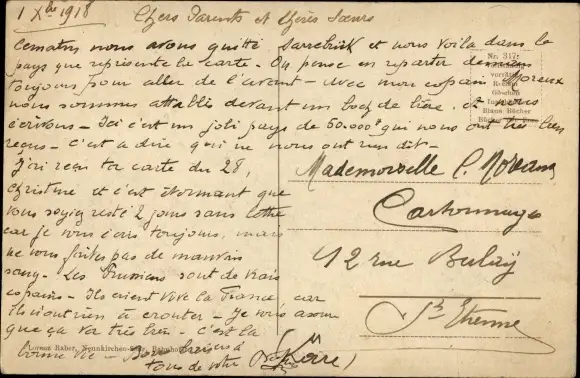 1 Xbre 1918
Chers Parents et Chères Sœurs
Ce matin nous avons quitté Sarrebrück et nous voilà dans le
pays que représente la carte - On pense en repartir demain
toujours pour aller de l'avant - Avec mon copain Moreux
nous sommes attablés devant un bock de bière, et nous
écrivons - Ici c'est un joli pays de 50.000 qui nous ont très bien
reçus - c'est à dire qui ne nous ont rien dit -
J'ai reçu ta carte du 28,
Christine et c'est étonnant que
vous soyez resté 2 jours sans lettre
car je vous écris toujours, mais
ne vous faites pas de mauvais
sang - Les Prussiens sont de vrais
copains - Ils crient Vive la France, car
ils n'ont rien à croûter - Je vous assure
que ça va très bien - C'est la
bonne vie - Bons baisers à
tous de votre
Mademoiselle C.
42 rue
St Etienne
Nr. 317
Blaue Bücher
Neunkirchen-Saar, Bahnhofstr.